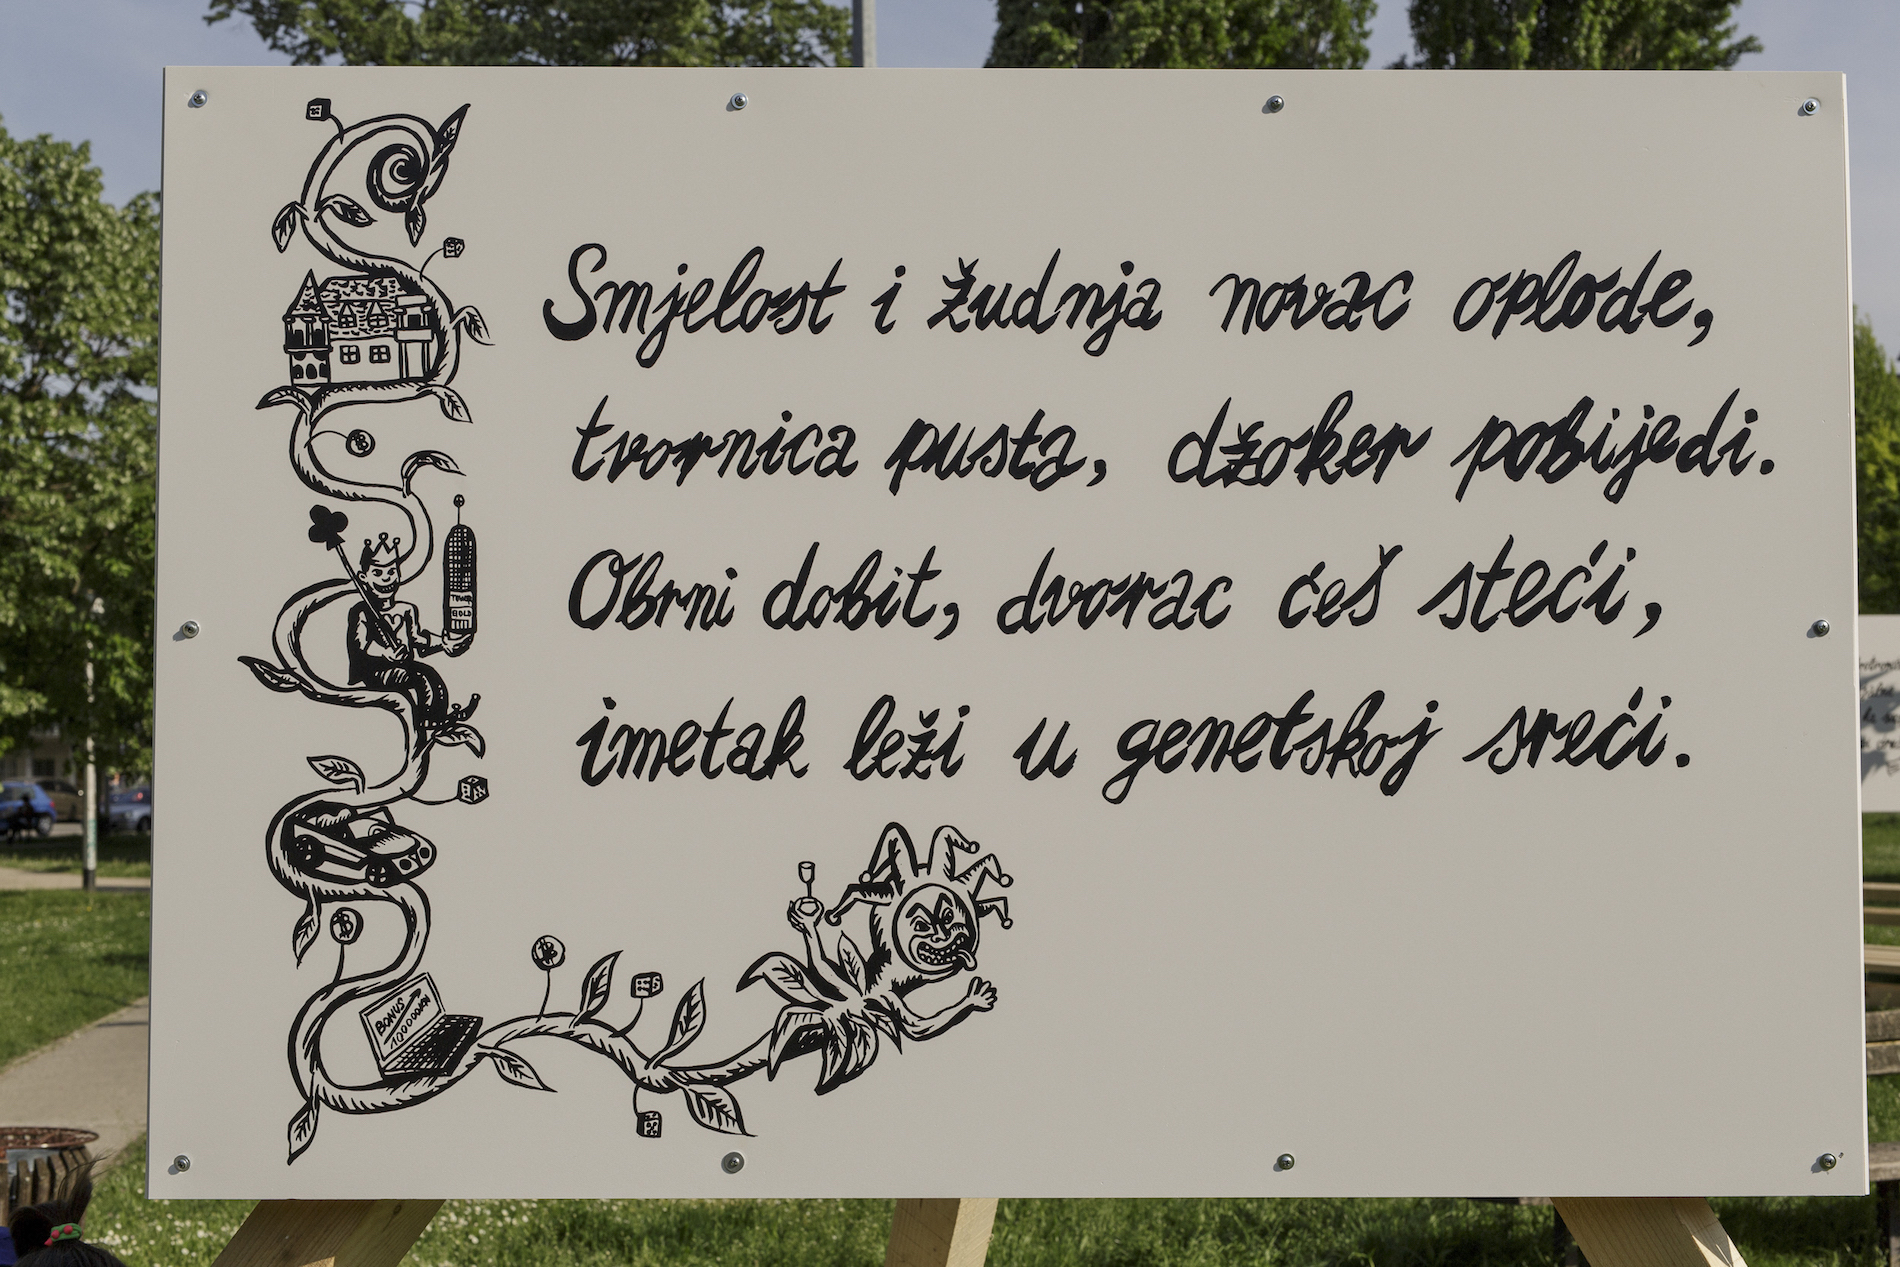 Smjelost i žudnja novac oplode,
tvornica pusta, džoker pobijedi.
Obrni dobit, dvorac ćeš steći,
imetak leži u genetskoj sreći.
TOWER
GOLD
BONUS